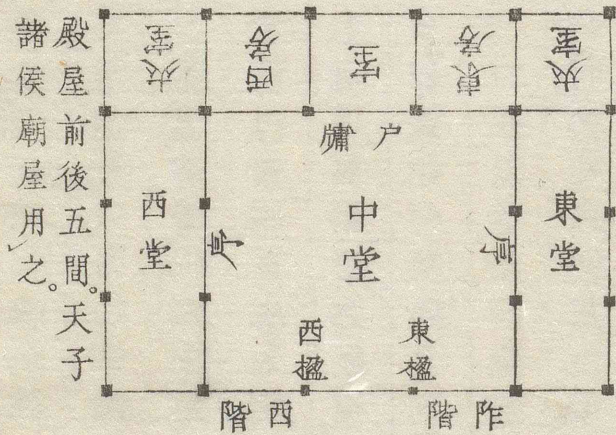 夾室
東房
室
西房
夾室
户牖
東堂
序
中堂
序
西堂
東楹
西楹
阼階
西階
殿屋前後五間。天子
諸侯廟屋用之。